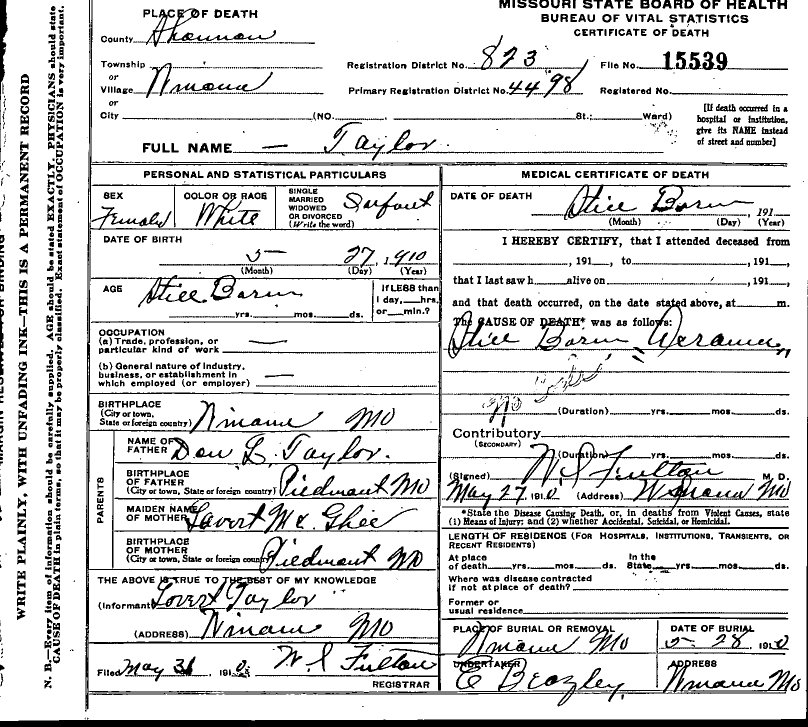 MISSOURI STATE BOARD OF HEALTH
BUREAU OF VITAL STATISTICS
CERTIFICATE OF DEATH
PLACE OF DEATH
County Shannon
Township
or
Village Winona
or
City (NO. St.; Ward)
Registration District No. 823 File No. 15539
Primary Registration District No. 4498 Registered No.
[If death occurred in a hospital or institution, give its NAME instead of street and number]
FULL NAME — Taylor.
PERSONAL AND STATISTICAL PARTICULARS
SEX Female
COLOR OR RACE White
SINGLE MARRIED WIDOWED OR DIVORCED (Write the word) Infant
DATE OF BIRTH
5 27, 1910
(Month) (Day) (Year)
AGE Still Born
yrs. mos. ds.
If LESS than 1 day, hrs. or min.?
OCCUPATION
(a) Trade, profession, or particular kind of work —
(b) General nature of industry, business, or establishment in which employed (or employer) —
BIRTHPLACE
(City or town, State or foreign country) Winona Mo
PARENTS
NAME OF FATHER Don L. Taylor.
BIRTHPLACE OF FATHER
(City or town, State or foreign country) Piedmont Mo
MAIDEN NAME OF MOTHER Lovert Mc Ghee
BIRTHPLACE OF MOTHER
(City or town, State or foreign country) Piedmont Mo
THE ABOVE IS TRUE TO THE BEST OF MY KNOWLEDGE
(Informant Lovert Taylor
(ADDRESS) Winona Mo
Filed May 31, 1910. W. S. Fulton
REGISTRAR
MEDICAL CERTIFICATE OF DEATH
DATE OF DEATH
Still Born, 191
(Month) (Day) (Year)
I HEREBY CERTIFY, that I attended deceased from
, 191 , to , 191 ,
that I last saw h alive on , 191 ,
and that death occurred, on the date stated above, at m.
The CAUSE OF DEATH* was as follows:
Still Born
No
(Duration) yrs. mos. ds.
Contributory
(SECONDARY)
(Duration) yrs. mos. ds.
(Signed) W S Fulton M. D.
May 27, 1910. (Address) Winona Mo
*State the Disease Causing Death, or, in deaths from Violent Causes, state (1) Means of Injury; and (2) whether Accidental, Suicidal, or Homicidal.
LENGTH OF RESIDENCE (FOR HOSPITALS, INSTITUTIONS, TRANSIENTS, OR RECENT RESIDENTS)
At place of death yrs. mos. ds. In the State yrs. mos. ds.
Where was disease contracted if not at place of death?
Former or usual residence
PLACE OF BURIAL OR REMOVAL Winona Mo
DATE OF BURIAL 5-28 1910
UNDERTAKER C Beazley.
ADDRESS Winona Mo
WRITE PLAINLY, WITH UNFADING INK—THIS IS A PERMANENT RECORD
N. B.—Every item of information should be carefully supplied. AGE should be stated EXACTLY. PHYSICIANS should state
CAUSE OF DEATH in plain terms, so that it may be properly classified. Exact statement of OCCUPATION is very important.